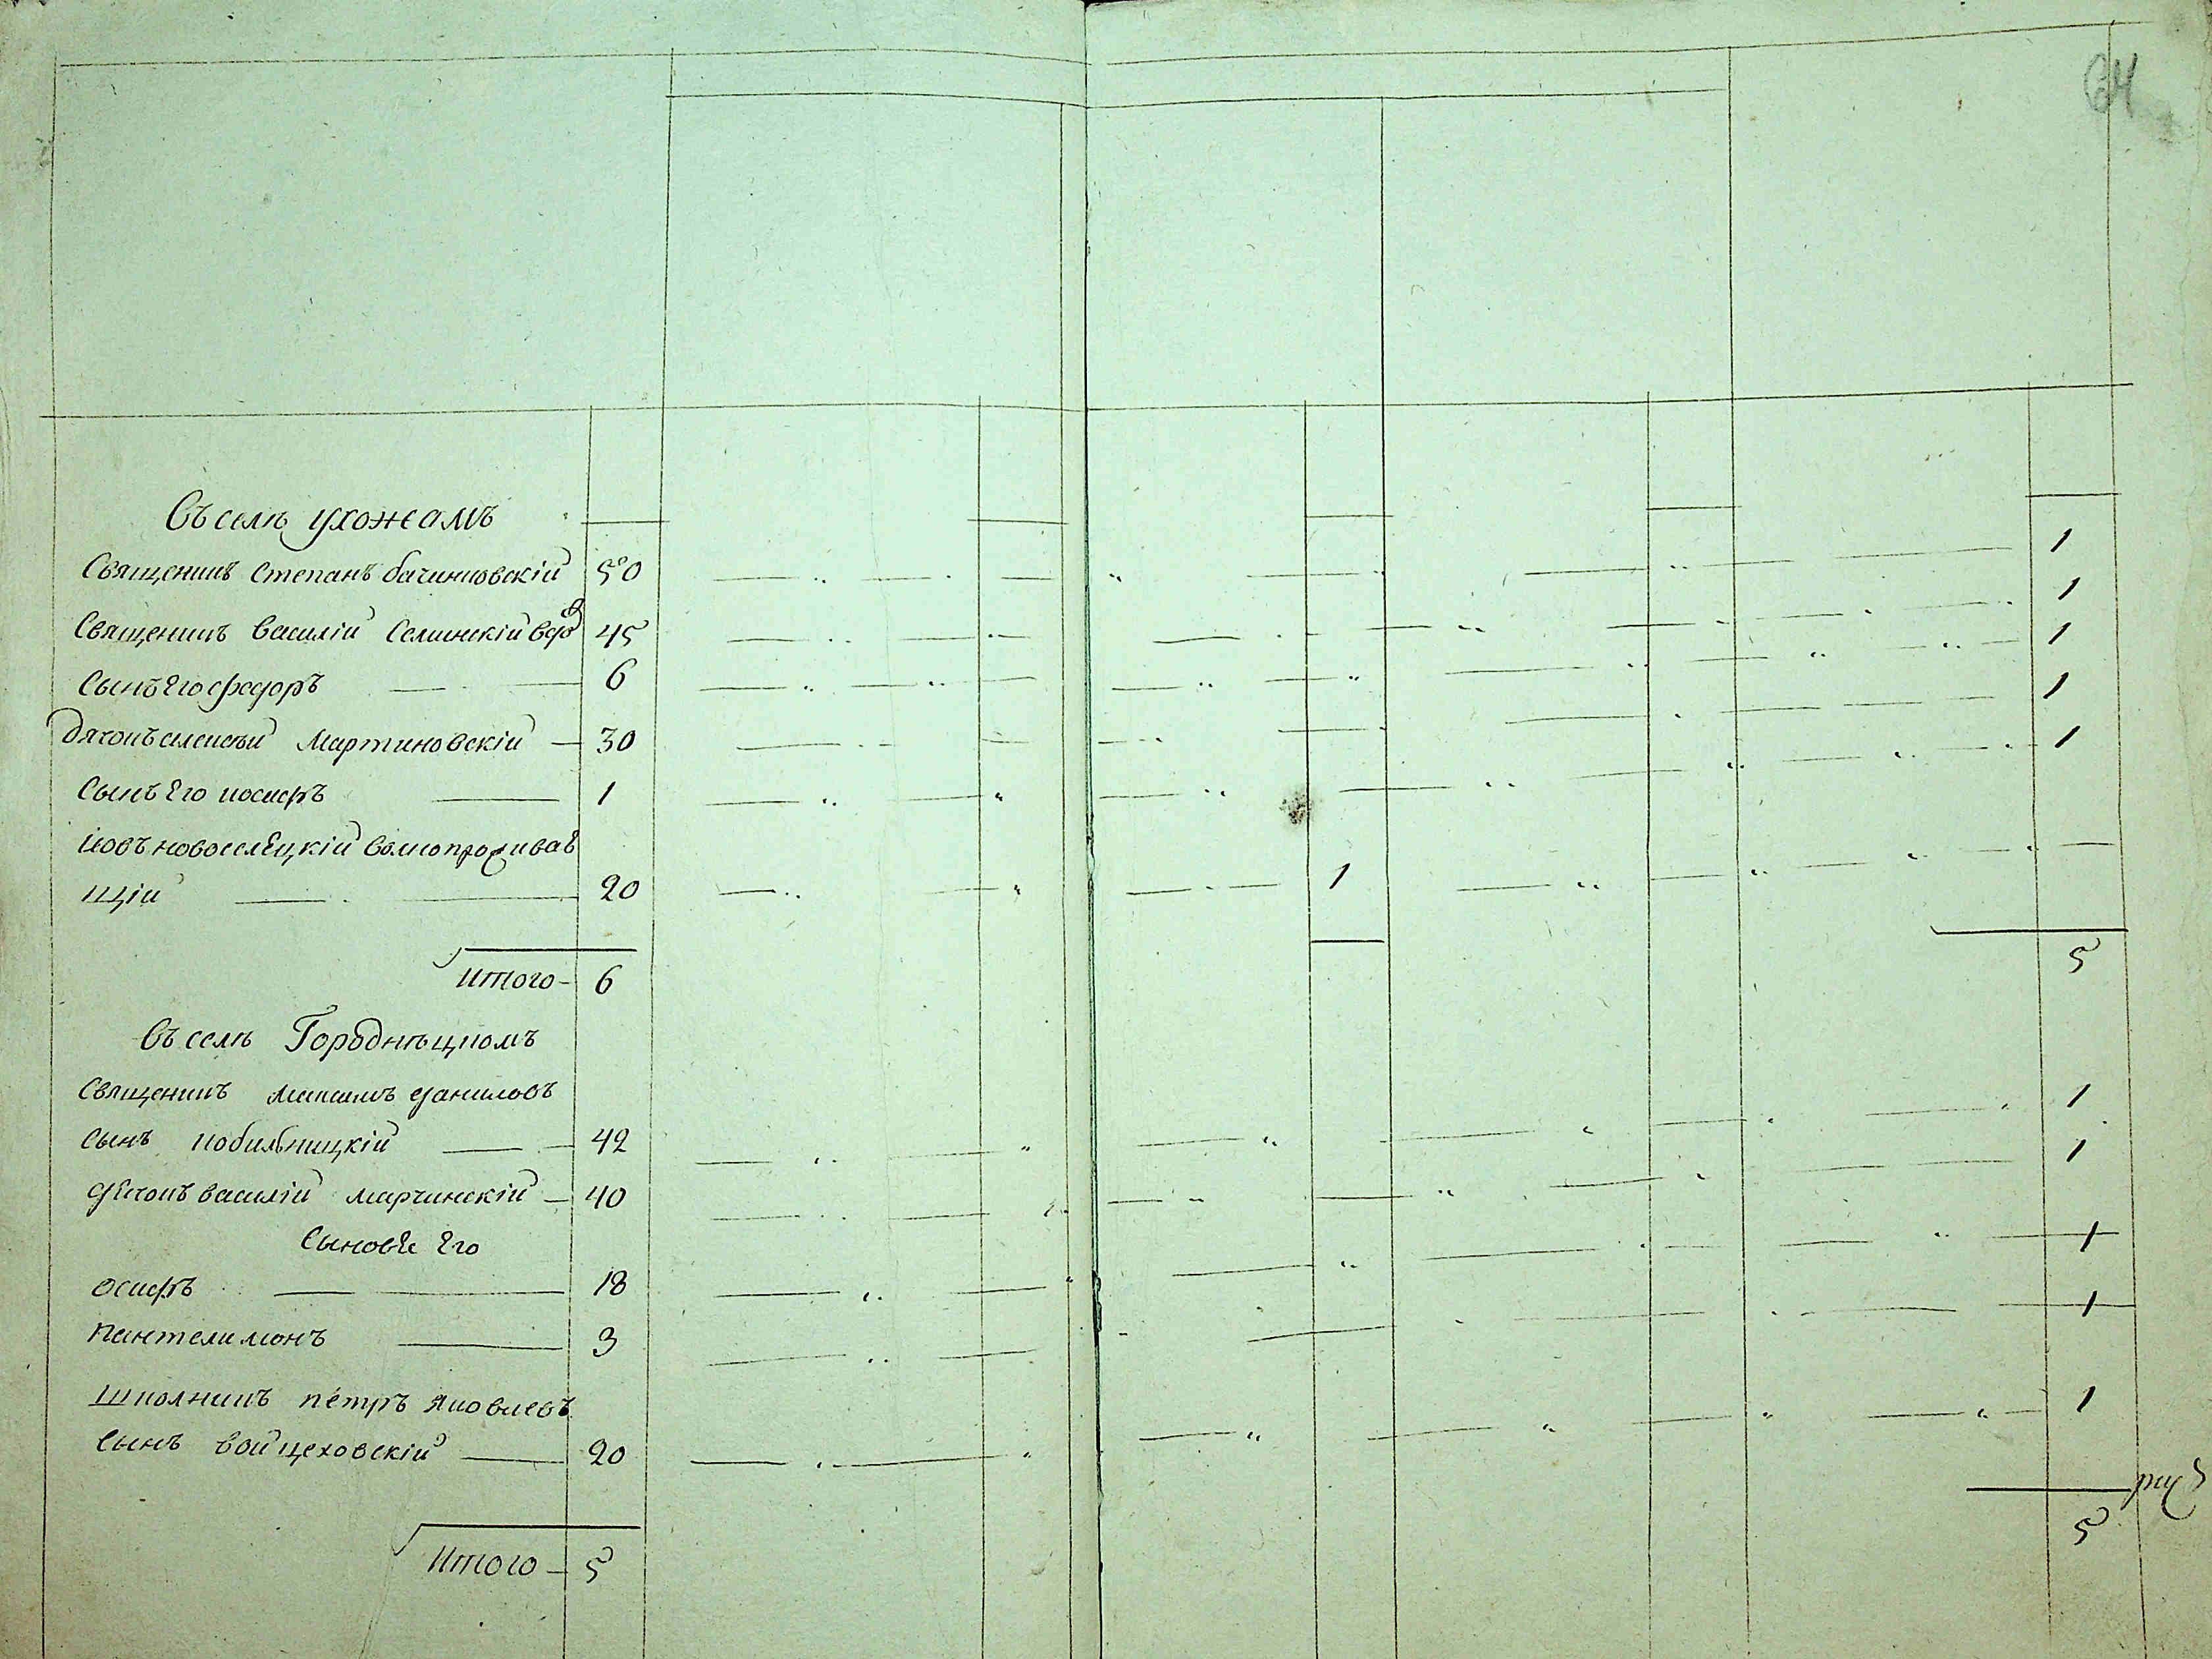 64
Въ селѣ Ухожемъ
Священикъ Степанъ бачинсовскій 50 1
Священикъ Василій Селинскій вдо 45 1
Сынъ Его федоръ 6 1
Дячокъ алексѣй Мартиновскій 30 1
Сынъ Его иосифъ 1 1
Іовъ новоселецкій волнопроживае
щій 20 1
Итого 6 5
Въ селѣ Городнѣцкомъ
Священикъ максимъ даниловъ
Сынъ кобильницкій 42 1
дячокъ василій марчинскій 40 1
Сынове Его
осифъ 18 1
пантелимонъ 3 1
Школникъ пétръ яковлевъ
Сынъ войцеховскій 20 1
Итого 5 5